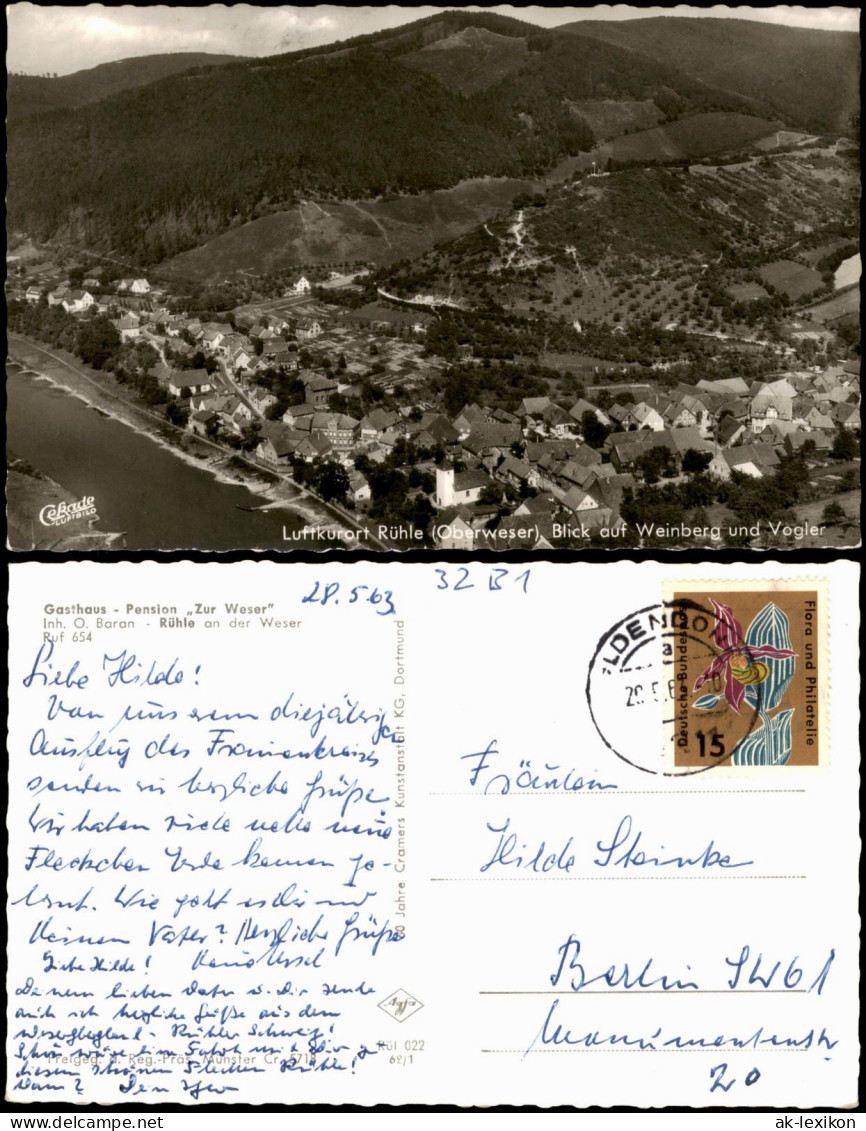 Cekade
LUFTBILD
Luftkurort Rühle (Oberweser), Blick auf Weinberg und Vogler
Gasthaus - Pension „Zur Weser"
Inh. O. Baran - Rühle an der Weser
Ruf 654
28.5.63
32 B1
Liebe Hilde!
Von unserem diesjährigen
Ausflug des Frauenkreises
senden wir herzliche Grüße.
Wir haben viele nette neue
Fleckchen Erde kennen ge-
lernt. Wie geht es dir und
Deinem Vater? Herzliche Grüße
Liebe Hilde!
Deinem lieben Vater u. Dir sende
auch ich herzliche Grüße aus dem
Weserbergland - Rühler Schweiz!
diesem schönen Flecken Rühle!
Wann? Dein
60 Jahre Cramers Kunstanstalt KG, Dortmund
Freigeg. d. Reg.-Präs. Münster Cr. 5718
Rül 022
62/1
LDENDO
a
Flora und Philatelie
Deutsche Bundespost
15
Fräulein
Hilde Steinke
Berlin SW 61
Monumentenstr.
20
ak-lexikon